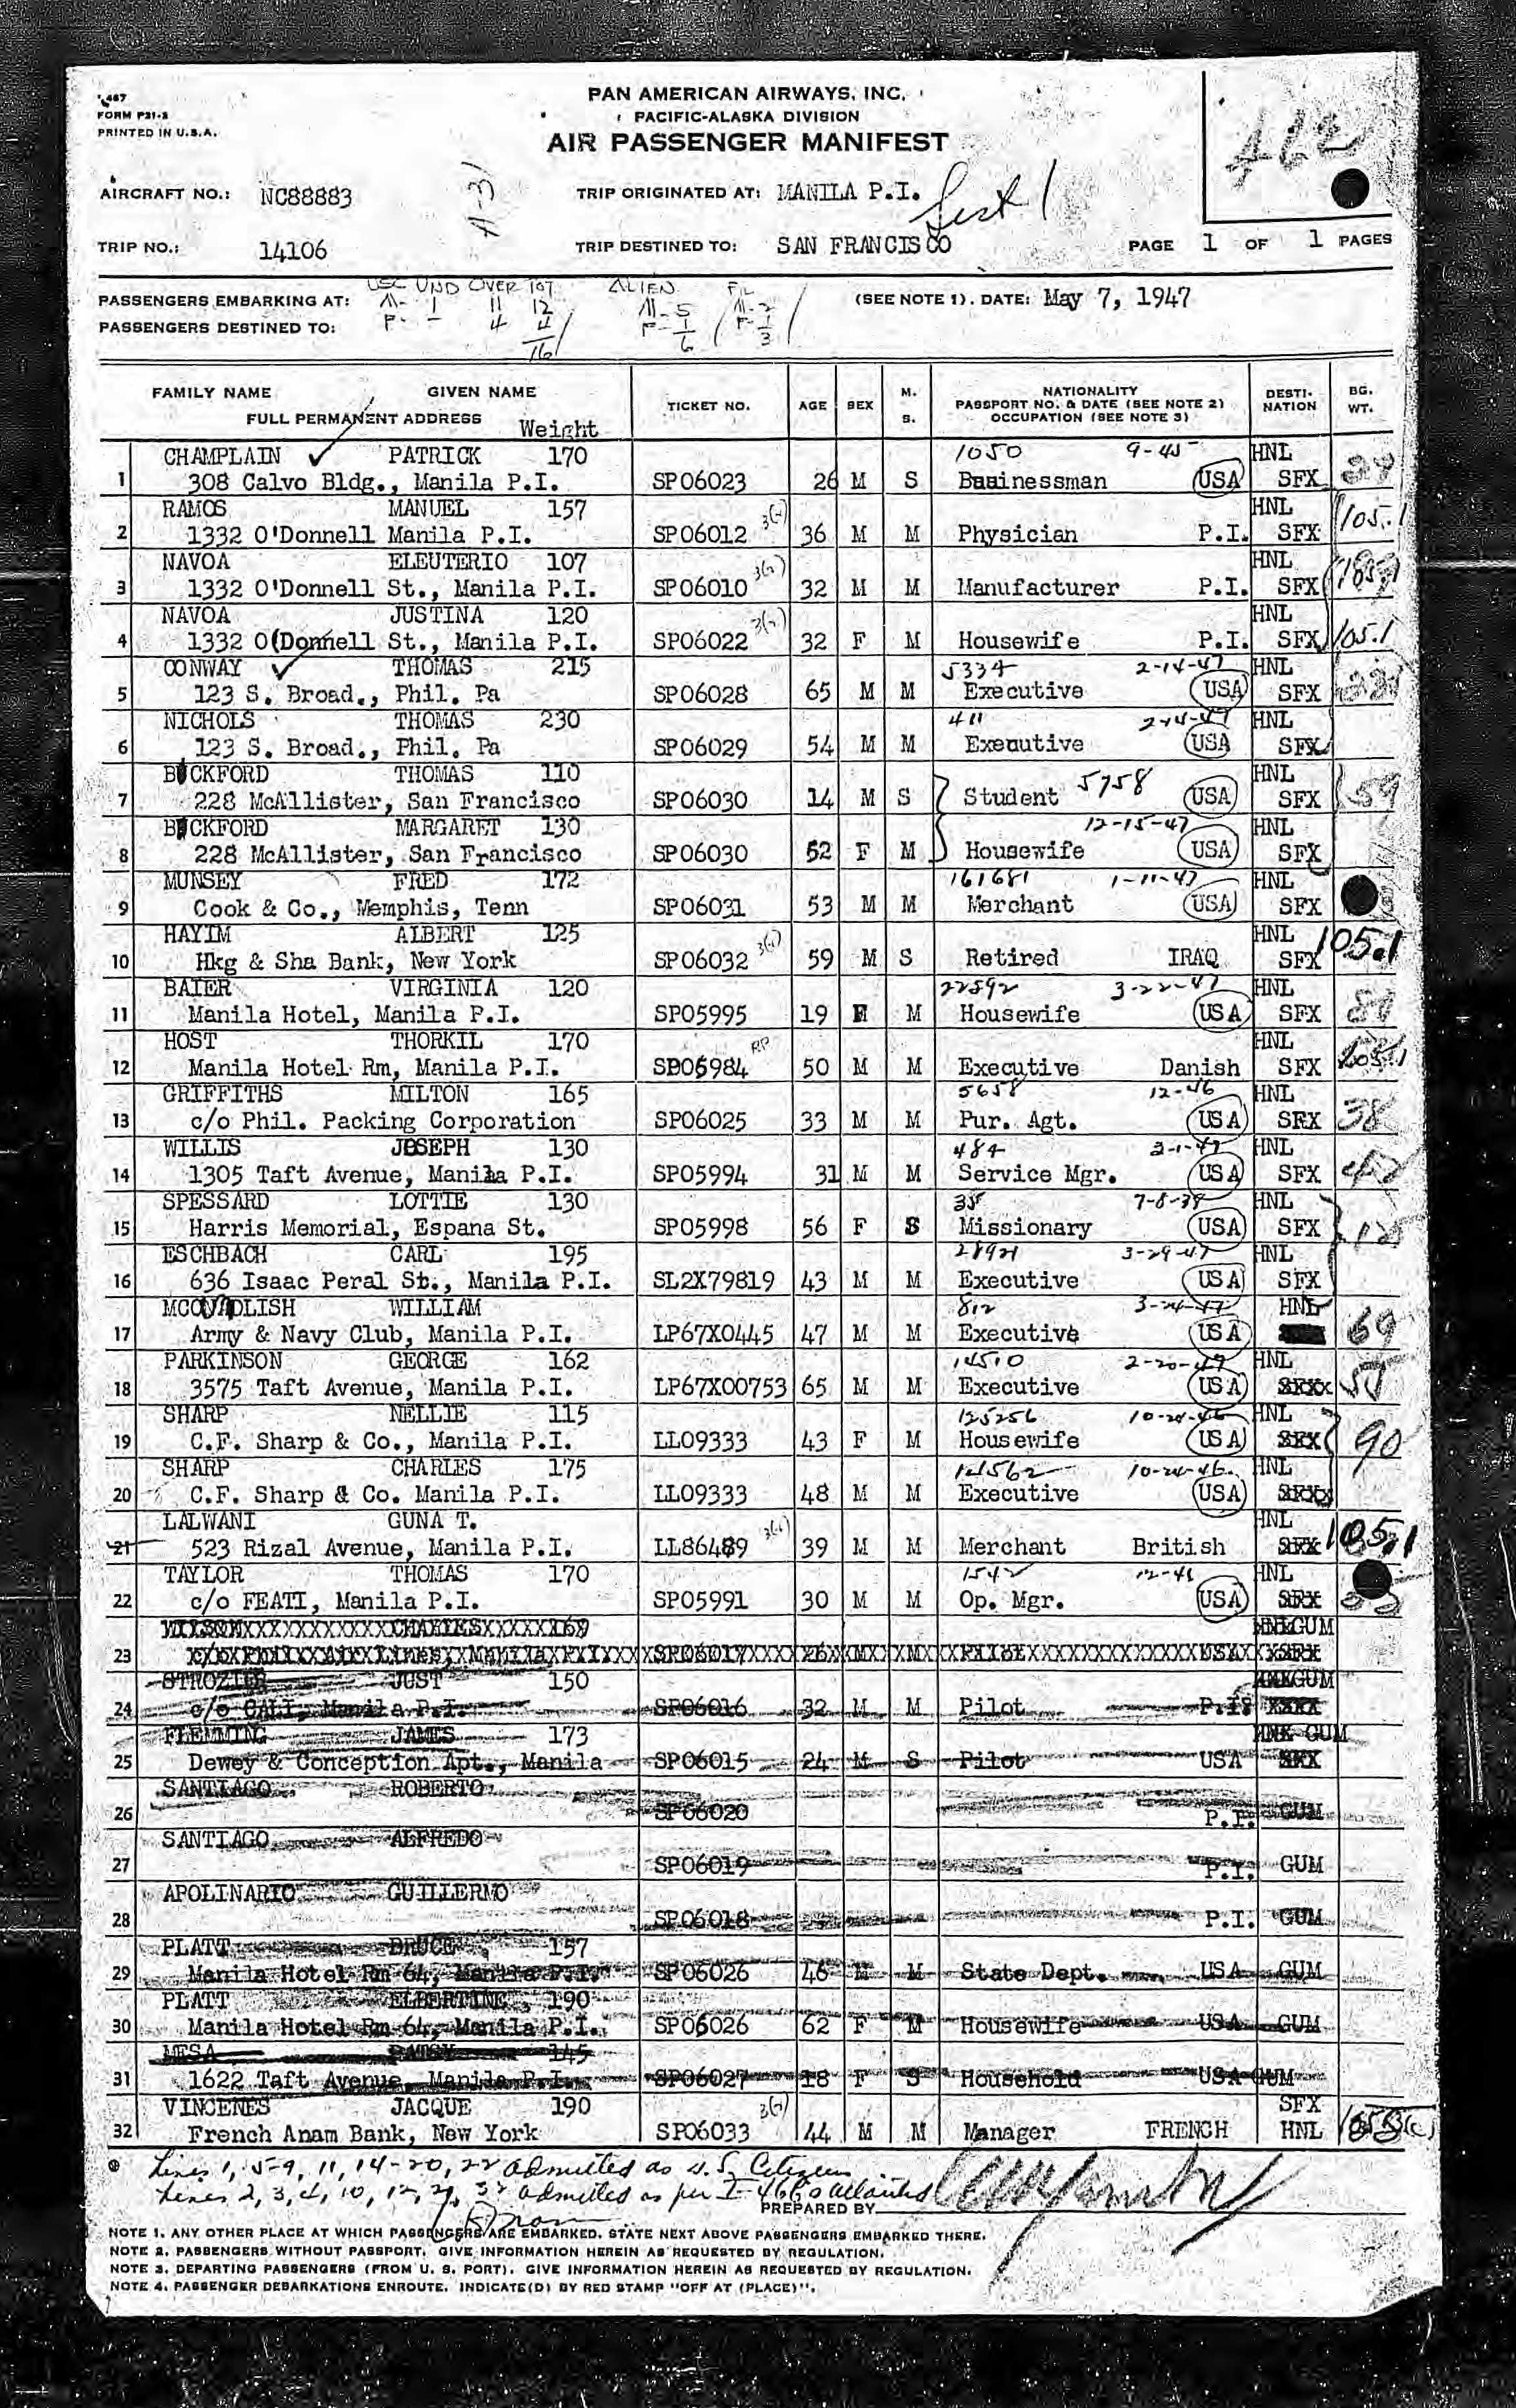 FORM P21-2
PRINTED IN U.S.A.
PAN AMERICAN AIRWAYS, INC.
PACIFIC-ALASKA DIVISION
AIR PASSENGER MANIFEST
AIRCRAFT NO.: NC88883 A-31 TRIP ORIGINATED AT: MANILA P.I.
TRIP NO.: 14106 TRIP DESTINED TO: SAN FRANCISCO PAGE 1 OF 1 PAGES
USC UND OVER TOT ALIEN FIL
PASSENGERS EMBARKING AT: M- 1 11 12 M-5 M-2 (SEE NOTE 1). DATE: May 7, 1947
PASSENGERS DESTINED TO: F- - 4 4 F-1 F-1
16 6 3
FAMILY NAME GIVEN NAME TICKET NO. AGE SEX M. S. NATIONALITY DESTI-NATION BG. WT.
FULL PERMANENT ADDRESS Weight PASSPORT NO. & DATE (SEE NOTE 2)
OCCUPATION (SEE NOTE 3)
CHAMPLAIN PATRICK 170 1050 9-45 HNL
1 308 Calvo Bldg., Manila P.I. SP06023 26 M S Businessman USA SFX
RAMOS MANUEL 157 HNL
2 1332 O'Donnell Manila P.I. SP06012 36 M M Physician P.I. SFX 105.1
NAVOA ELEUTERIO 107 HNL
3 1332 O'Donnell St., Manila P.I. SP06010 32 M M Manufacturer P.I. SFX
NAVOA JUSTINA 120 HNL
4 1332 O(Donnell St., Manila P.I. SP06022 32 F M Housewife P.I. SFX 105.1
CONWAY THOMAS 215 5334 2-14-47 HNL
5 123 S. Broad., Phil. Pa SP06028 65 M M Executive USA SFX
NICHOLS THOMAS 230 411 2-14-47 HNL
6 123 S. Broad., Phil. Pa SP06029 54 M M Executive USA SFX
BICKFORD THOMAS 110 HNL
7 228 McAllister, San Francisco SP06030 14 M S Student 5758 USA SFX 59
BICKFORD MARGARET 130 12-15-47 HNL
8 228 McAllister, San Francisco SP06030 52 F M Housewife USA SFX
MUNSEY FRED 172 161681 1-11-47 HNL
9 Cook & Co., Memphis, Tenn SP06031 53 M M Merchant USA SFX
HAYIM ALBERT 125 HNL 105.1
10 Hkg & Sha Bank, New York SP06032 59 M S Retired IRAQ SFX
BAIER VIRGINIA 120 22592 3-22-47 HNL
11 Manila Hotel, Manila P.I. SP05995 19 F M Housewife USA SFX
HOST THORKIL 170 HNL
12 Manila Hotel Rm, Manila P.I. SP05984 50 M M Executive Danish SFX 105.1
GRIFFITHS MILTON 165 5658 12-46 HNL
13 c/o Phil. Packing Corporation SP06025 33 M M Pur. Agt. USA SFX 38
WILLIS JOSEPH 130 484 3-1-47 HNL
14 1305 Taft Avenue, Manila P.I. SP05994 31 M M Service Mgr. USA SFX
SPESSARD LOTTIE 130 35 7-8-38 HNL
15 Harris Memorial, Espana St. SP05998 56 F S Missionary USA SFX
ESCHBACH CARL 195 28921 3-29-47 HNL
16 636 Isaac Peral St., Manila P.I. SL2X79819 43 M M Executive USA SFX
WILLIAM 812 3-24-47 HNL
17 Army & Navy Club, Manila P.I. LP67X0445 47 M M Executive USA 69
PARKINSON GEORGE 162 14510 2-20-47 HNL
18 3575 Taft Avenue, Manila P.I. LP67X00753 65 M M Executive USA
SHARP NELLIE 115 125256 10-24-46 HNL
19 C.F. Sharp & Co., Manila P.I. LL09333 43 F M Housewife USA SFX 90
SHARP CHARLES 175 14562 10-24-46 HNL
20 C.F. Sharp & Co. Manila P.I. LL09333 48 M M Executive USA
LALWANI GUNA T. HNL
21 523 Rizal Avenue, Manila P.I. LL86489 39 M M Merchant British SFX 105.1
TAYLOR THOMAS 170 1542 12-46 HNL
22 c/o FEATI, Manila P.I. SP05991 30 M M Op. Mgr. USA SFX
GUM
23
STROZIER JUST 150 GUM
24 c/o CALI, Manila P.I. SP06016 32 M M Pilot P.I.
FLEMMING JAMES 173 GUM
25 Dewey & Conception Apt., Manila SP06015 24 M S Pilot USA SFX
SANTIAGO ROBERTO
26 SP06020 P.I. GUM
SANTIAGO ALFREDO
27 SP06019 P.I. GUM
APOLINARIO GUILLERMO
28 SP06018 P.I. GUM
PLATT BRUCE 157
29 Manila Hotel Rm 64, Manila P.I. SP06026 46 M M State Dept. USA GUM
PLATT ELBERTINE 190
30 Manila Hotel Rm 64, Manila P.I. SP06026 62 F M Housewife USA GUM
MESA PATSY 145
31 1622 Taft Avenue, Manila P.I. SP06027 18 F S Household USA GUM
VINCENES JACQUE 190 SFX
32 French Anam Bank, New York SP06033 44 M M Manager FRENCH HNL
Lines 1, 5-9, 11, 14-20, 22 admitted as U.S. Citizen
Lines 2, 3, 4, 10, 12, 21, 32 admitted as per I-466s attached
PREPARED BY
NOTE 1. ANY OTHER PLACE AT WHICH PASSENGERS ARE EMBARKED. STATE NEXT ABOVE PASSENGERS EMBARKED THERE.
NOTE 2. PASSENGERS WITHOUT PASSPORT. GIVE INFORMATION HEREIN AS REQUESTED BY REGULATION.
NOTE 3. DEPARTING PASSENGERS (FROM U. S. PORT). GIVE INFORMATION HEREIN AS REQUESTED BY REGULATION.
NOTE 4. PASSENGER DEBARKATIONS ENROUTE. INDICATE(D) BY RED STAMP "OFF AT (PLACE)".